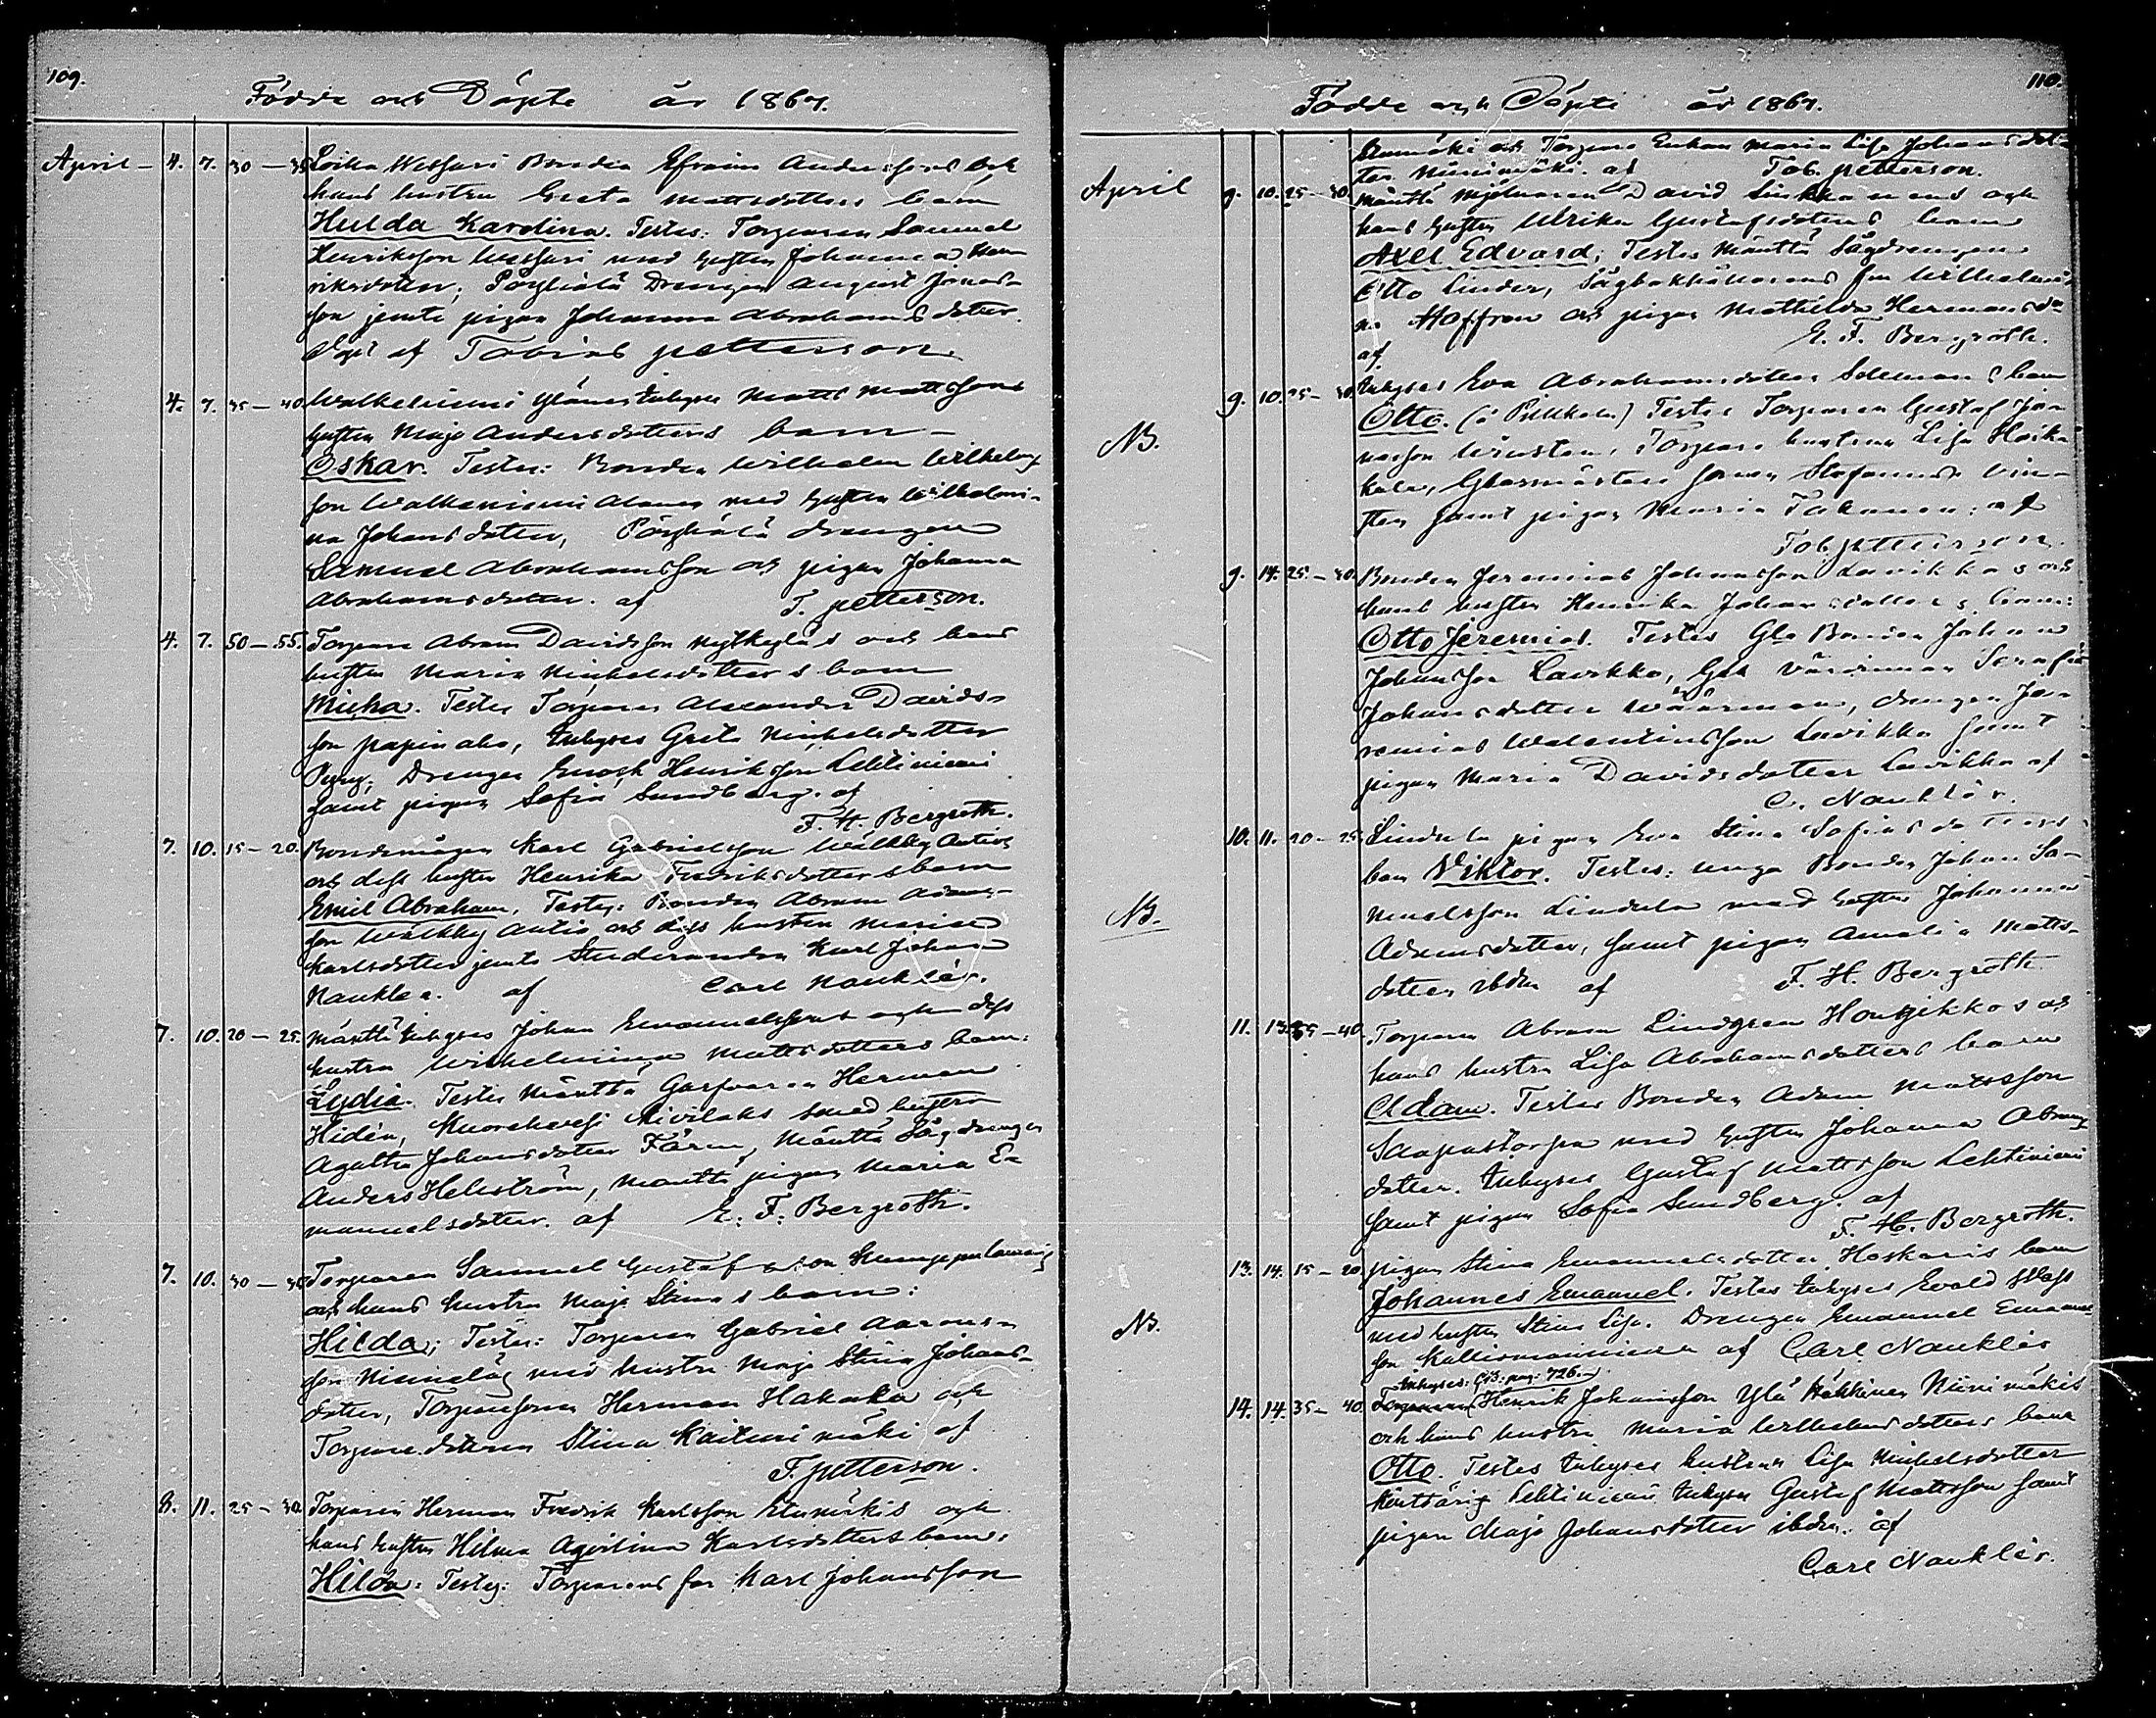 109.
Födde och Döpte år 1867.
April - 4. 7. 30 - 35 Loika Wessari Bonden Efraim Anderssons och
hans hustru Greta Mattsdotters barn
Hulda Karolina. Testes: Torparen Samuel
Henriksson Wessari med hustru Johanna Hen
riksdotter, drengen August Jonas-
son jemte pigan Johanna Abrahamsdotter.
Döpt af Tobias Petterson.
4. 7. 35 - 40. Matts Mattssons
hustru Maja Andersdotters barn -
Oskar. Testes: Bonden Wilhelm Wilhelms
son med hustru Wilhelmi-
na Johansdotter, drengen
Samuel Abrahamsson och pigan Johanna
Abrahamsdotter. af T. Petterson.
4. 7. 50 - 55. Torparen Abram Davidsson och hans
hustru Maria Michelsdotters barn
Micha. Testes Torparen Alexander Davids-
son Papinaho, Inhyses Greta Michelsdotter
Drengen Enoch Henriksson Lehtiniemi
samt pigan Sofia Sundberg. af
F. H. Bergroth.
7. 10. 15 - 20. Bondemågen Karl Gabrielsson Wälkky Antios
och dess hustru Henrika Fredriksdotters barn
Emil Abraham. Testes: Bonden Abram Adams-
son Wälkky Antio och dess hustru Maria
Karlsdotter jemte Studeranden Karl Johan
Naukler. af Carl Nauklér.
7. 10. 20 - 25. Mänttä Inhyses Johan Emanuelssons och dess
hustru Wilhelmina Mattsdotters barn:
Lydia. Testes Mänttä Garfvaren Herman
Hidén, Kuorehvesi smed hustru
Agatha Johansdotter Färm, Mänttä Sågdrengen
Anders Hellström, Mänttä pigan Maria E-
manuelsdotter. af E. F. Bergroth.
7. 10. 30 - 35 Torparen Samuel Gustafsson
och hans hustru Maja Stinas barn:
Hilda; Testes: Torparen Gabriel Aarons-
son med hustru Maja Stina Johans-
dotter, Torparesonen Herman Hakala och
Torparedottren Stina Kaiturimäki af
T. Petterson.
8. 11. 25 - 30. Torparen Herman Fredrik Karlsson Etumäkis och
hans hustru Hilma Agustina Karlsdotters barn:
Hilda: Testes: Torparens far Karl Johansson
110.
Födde och Döpte år 1867.
Etumäki och Torpare Enkan Maria Lisa Johansdot-
ter Niinimäki. af Tob. Petterson.
April 9. 10. 25 - 30. Mänttä Mjölnaren David och
hans hustru Ulrika Gustafsdotters barn
Axel Edvard; Testes Mänttä Sågdrengen
Otto Linder, Sågbokhållarens fru Wilhelmi-
na Hoffren och pigan Mathilda Hermansdr
af E. F. Bergroth.
NB. 9. 10. 25 - 30. Inhyses Eva Abrahamsdotter Selmans barn
Otto. Testes Torparen Gustaf Jo-
nasson Torpare hustrun Lisa
Glasmästare sonen Stefanus
samt pigan Maria Takanen. af
Tob. Petterson.
9. 14. 25. - 30. Bonden Jeremias Johansson Lavikkas och
hans hustru Henrika Johansdotters barn:
Otto Jeremias. Testes Gla Bonden Johan
Johansson Lavikko, Gla värdinnan Serafia
Johansdotter drengen Je-
remias Walentinsson Lavikka samt
pigan Maria Davidsdotter Lavikka af
C. Nauklér.
NB. 10. 11. 20 - 25. Lindula pigan Eva Stina Sofiasdotters
barn Viktor. Testes: unga Bonden Johan Sa-
muelsson Lindula med hustru Johanna
Adamsdotter, samt pigan Amalia Matts-
dotter ibdm af F. H. Bergroth
11. 13. 35 - 40. Torparen Abram Lindgren Honkikkos och
hans hustru Lisa Abrahamsdotters barn
Adam. Testes Bonden Adam Mattsson
med hustru Johanna Abrams
dotter. Inhyses Gustaf Mattsson Lehtiniemi
samt pigan Sofia Sundberg. af
F. H. Bergroth.
NB. 13. 14. 15 - 20. pigan Stina Emanuelsdotter Koskaris barn
Johannes Emanuel. Testes Inhyses Evald
med hustru Stina Lisa. Drengen Emanuel Emanuels
son af Carl Nauklér
Inhyses: C.B. pag: 726.
14. 14. 35 - 40. Torparen Henrik Johansson Ylä Häkkinen Niinimäkis
och hans hustru Maria Wilhelmsdotters barn
Otto. Testes Inhyses hustrun Lisa Michelsdotter
Lehtiniemi Inhyses Gustaf Mattsson samt
pigan Maja Johansdotter ibdm. af
Carl Nauklér.